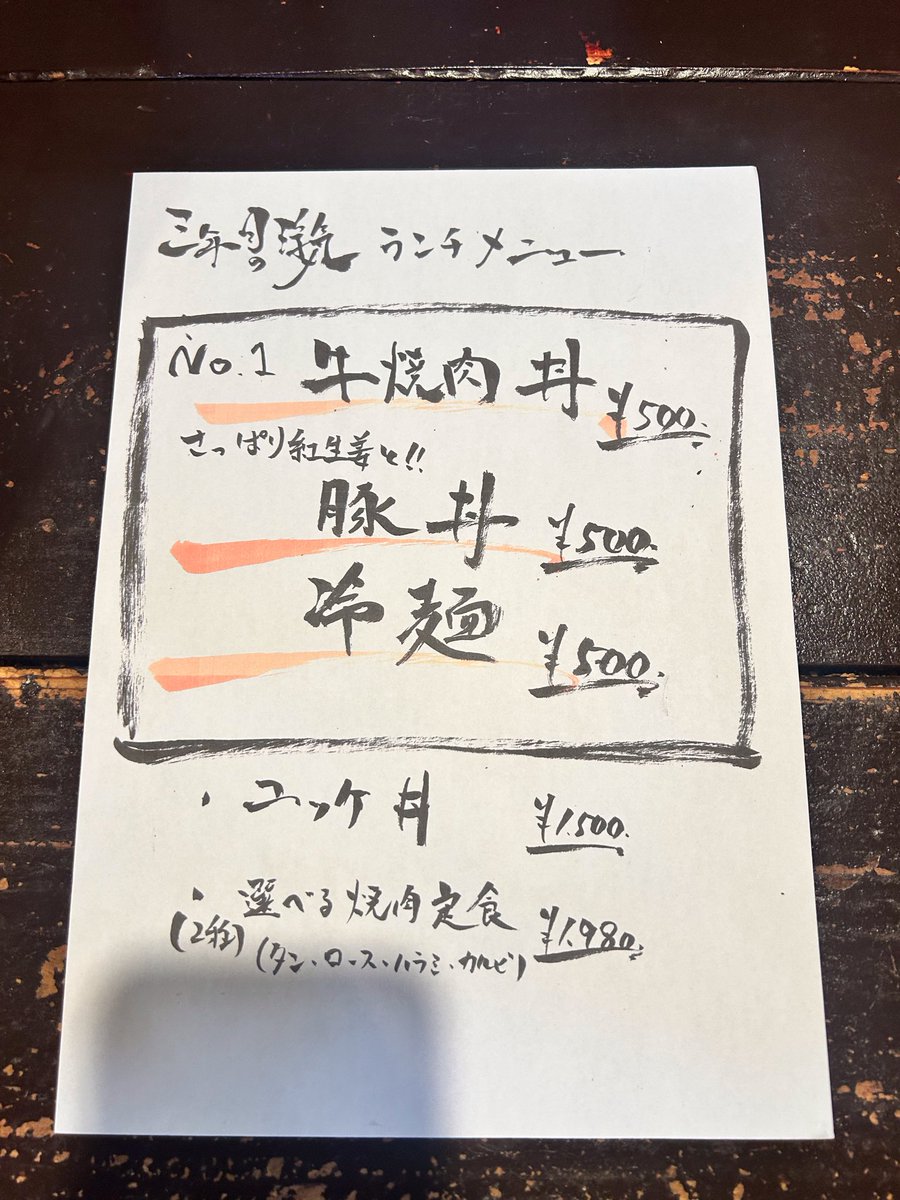 三年目の浮気 ランチメニュー
No.1 牛焼肉丼 ¥500.
さっぱり紅生姜と!!
豚丼 ¥500.
冷麺 ¥500.
・ユッケ丼 ¥1.500.
・選べる焼肉定食 ¥1.980.
(2種) (タン・ロース・ハラミ・カルビ)